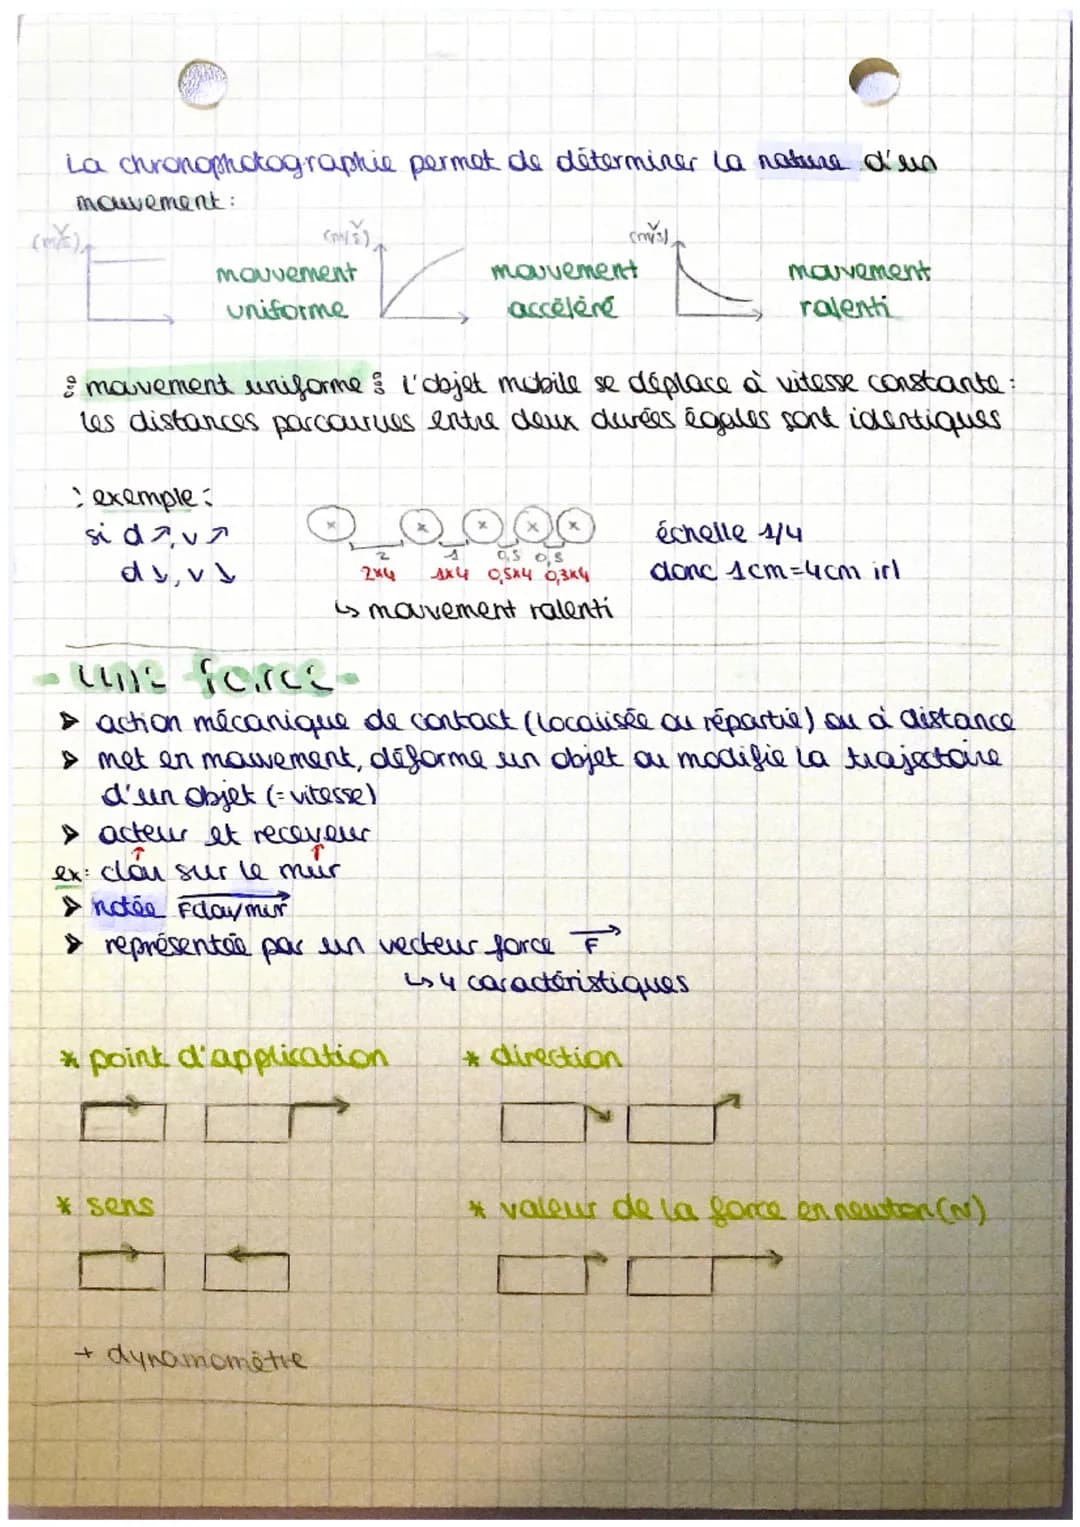 La chronophotographie permet de déterminer la nature d'un
mouvement :
v (m/s) v (m/s) v (m/s)
mouvement mouvement mouvement
uniforme accéléré ralenti
mouvement uniforme : l'objet mobile se déplace à vitesse constante :
les distances parcourues entre deux durées égales sont identiques
exemple :
si d ↗, v ↗ échelle 1/4
d ↘, v ↘ donc 1cm=4cm irl
2 1 0,5 0,3
2x4 1x4 0,5x4 0,3x4
↳ mouvement ralenti
- une force -
➤ action mécanique de contact (localisée ou répartie) ou à distance
➤ met en mouvement, déforme un objet ou modifie la trajectoire
d'un objet (= vitesse)
➤ acteur et receveur
ex: clou sur le mur
➤ notée Fclou/mur
➤ représentée par un vecteur force F
↳ 4 caractéristiques
* point d'application * direction
* sens * valeur de la force en newton (N)
+ dynamomètre